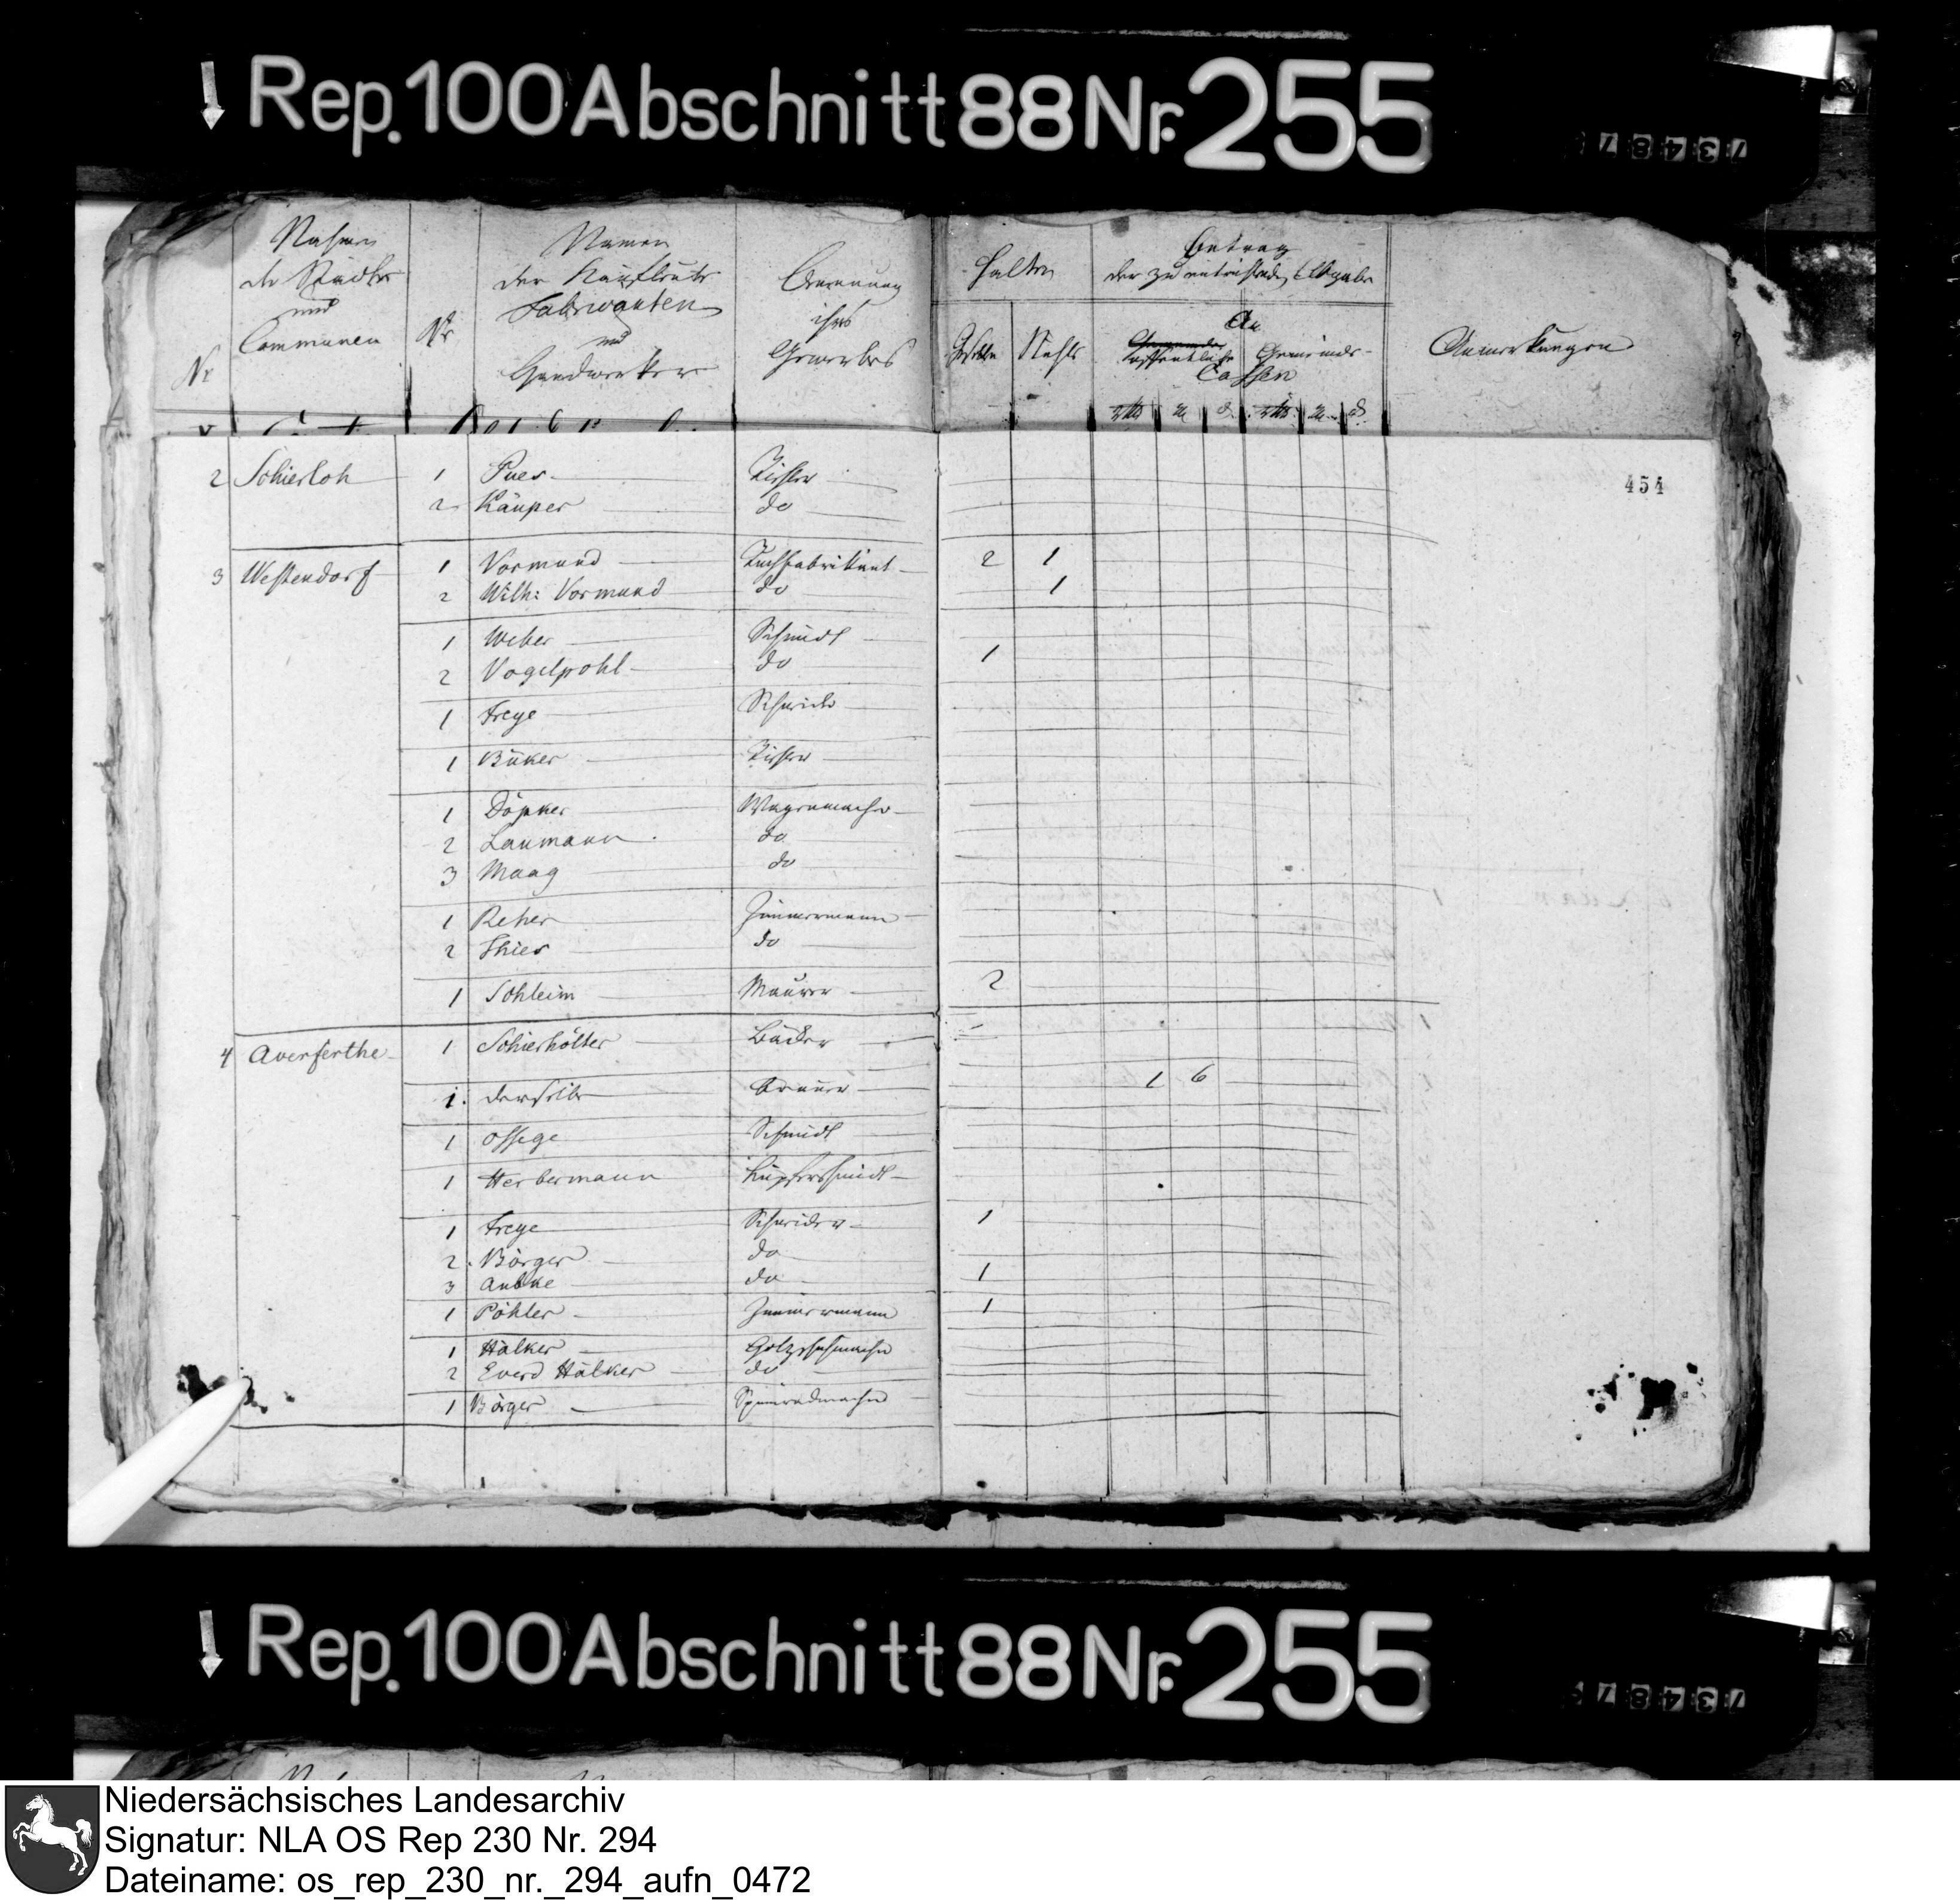 Rep. 100 Abschnitt 88 Nr. 255
73487
Nahmen der Städte und Communen
Nr
Namen der Kaufleute Fabricanten und Handwerker
Benennung ihres Gewerbes
Halten
Betrag der zu entrichtenden Abgabe
An
Gemeinde-
Cassen
Anmerkungen
454
2 Schierloh 1 Pues Tischler
2 Käuper do
3 Westendorf 1 Vormund Tuchfabrikant 2 1
2 Wilh: Vormund do 1
1 Weber Schmidt
2 Vogelpohl do 1
1 Freye Schneider
1 Büker Tischler
1 Döpker Wagenmacher
2 Laumann do
3 Maag do
1 Reher Zimmermann
2 Thies do
1 Schleim Maurer 2
4 Averferthe 1 Schierhölter Bäcker
1. derselbe Brauer 1 6
1 Ossege Schmidt
1 Herbermann Kupferschmidt
1 Freye Schneider 1
2. Börger do
3 do 1
1 Pöhler Zimmermann 1
1 Hülker Holzschuhmacher
2 Everd Hülker do
1 Börger Spinradmacher
Rep. 100 Abschnitt 88 Nr. 255
73487
Niedersächsisches Landesarchiv
Signatur: NLA OS Rep 230 Nr. 294
Dateiname: os_rep_230_nr._294_aufn_0472